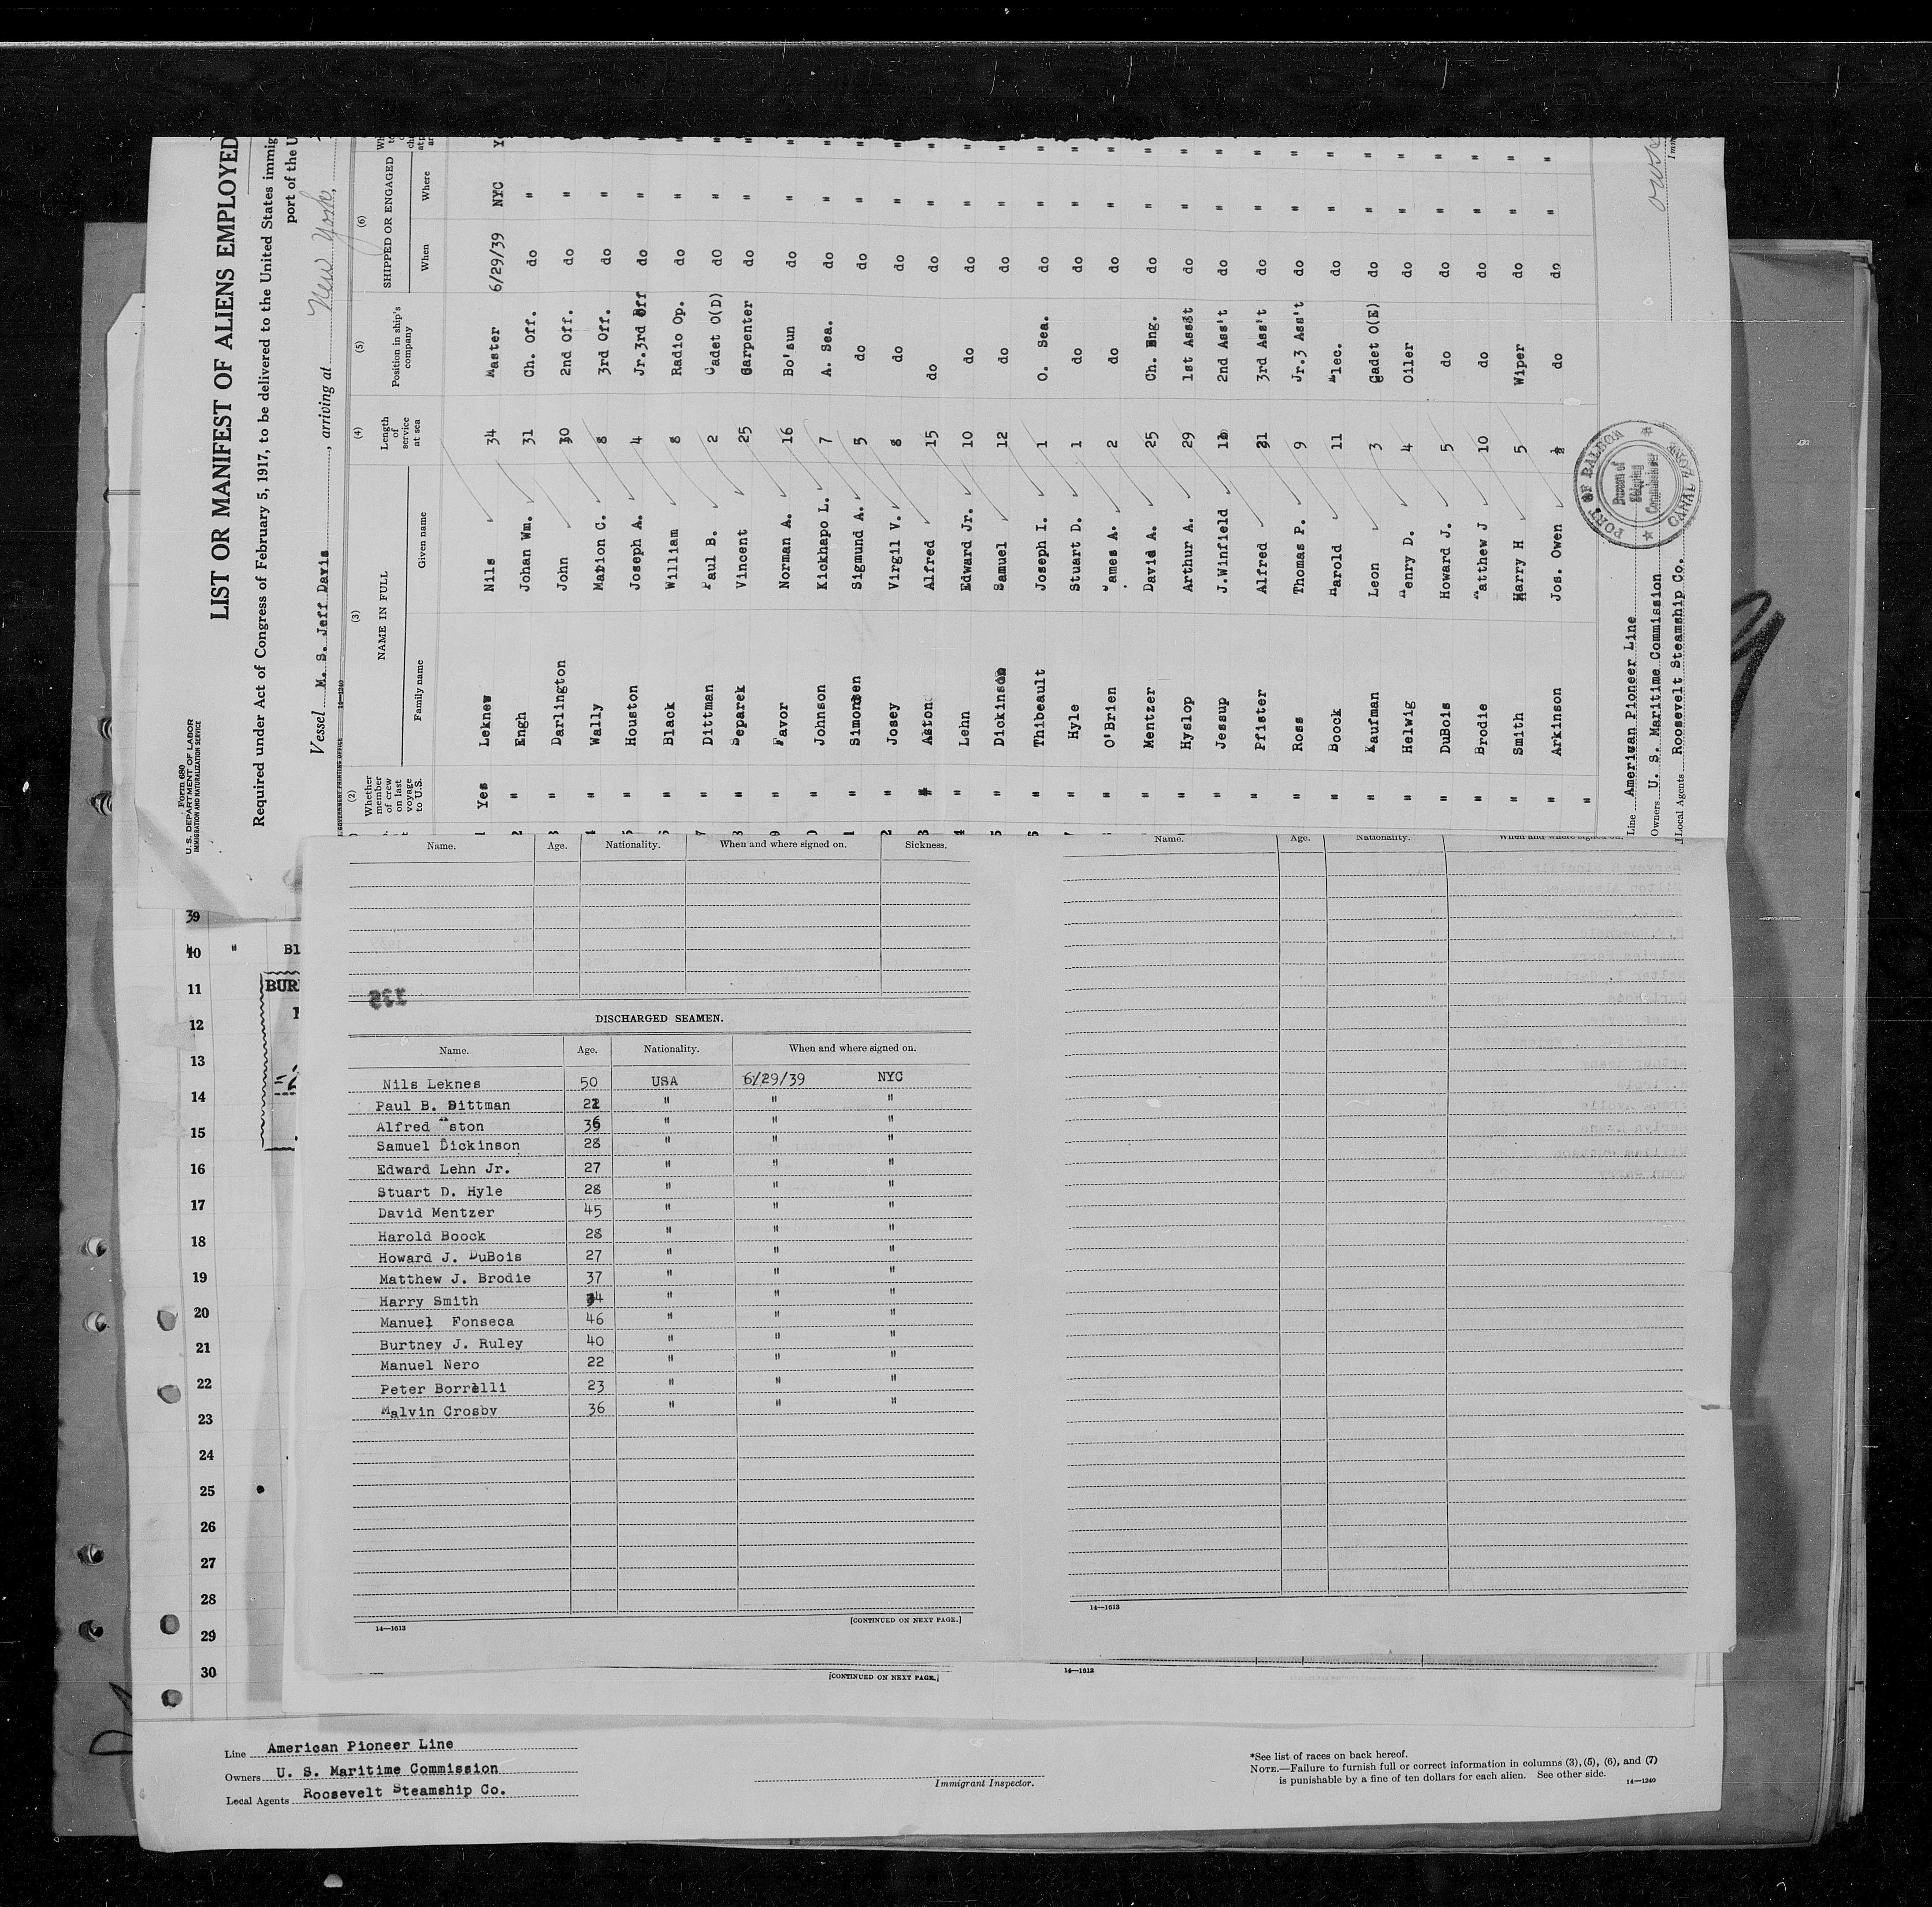 Form 680
U. S. DEPARTMENT OF LABOR
IMMIGRATION AND NATURALIZATION SERVICE
LIST OR MANIFEST OF ALIENS EMPLOYED
Required under Act of Congress of February 5, 1917, to be delivered to the United States immig
port of the U
Vessel M. S. Jeff Davis, arriving at New York,
GOVERNMENT PRINTING OFFICE 14—1240
(2) (3) (4) (5) (6)
Whether member of crew on last voyage to U.S. NAME IN FULL Length of service at sea Position in ship's company SHIPPED OR ENGAGED
Family name Given name When Where
1 Yes Leknes Nils 34 Master 6/29/39 NYC Y
2 " Engh Johan Wm. 31 Ch. Off. do " "
3 " Darlington John 30 2nd Off. do " "
4 " Wally Marion C. 8 3rd Off. do " "
5 " Houston Joseph A. 4 Jr.3rd Off do " "
6 " Black William 8 Radio Op. do " "
7 " Dittman Paul B. 2 Cadet O(D) do " "
8 " Separek Vincent 25 Carpenter do " "
9 " Favor Norman A. 16 Bo'sun do " "
0 " Johnson Kickhapo L. 7 A. Sea. do " "
1 " Simonsen Sigmund A. 5 do do " "
2 " Josey Virgil V. 8 do do " "
3 " Aston Alfred 15 do do " "
4 " Lehn Edward Jr. 10 do do " "
5 " Dickinson Samuel 12 do do " "
6 " Thibeault Joseph I. 1 O. Sea. do " "
7 " Hyle Stuart D. 1 do do " "
" O'Brien James A. 2 do do " "
" Mentzer David A. 25 Ch. Eng. do " "
" Hyslop Arthur A. 29 1st Ass't do " "
" Jessup J.Winfield 2nd Ass't do " "
" Pfister Alfred 3rd Ass't do " "
" Ross Thomas P. 9 Jr.3 Ass't do " "
" Boock Harold 11 Elec. do " "
" Kaufman Leon 3 Cadet O(E) do " "
" Helwig Henry D. 4 Oiler do " "
" DuBois Howard J. 5 do do " "
" Brodie Matthew J 10 do do " "
" Smith Harry H 5 Wiper do " "
" Arkinson Jos. Owen do do " "
"
Line American Pioneer Line
Owners U. S. Maritime Commission
Local Agents Roosevelt Steamship Co.
PORT OF BALBOA
CANAL ZONE
Bureau of
Shipping
Commissioner
Name. Age. Nationality. When and where signed on. Sickness.
DISCHARGED SEAMEN.
Name. Age. Nationality. When and where signed on.
Nils Leknes 50 USA 6/29/39 NYC
Paul B. Dittman 22 " " "
Alfred Aston 36 " " "
Samuel Dickinson 28 " " "
Edward Lehn Jr. 27 " " "
Stuart D. Hyle 28 " " "
David Mentzer 45 " " "
Harold Boock 28 " " "
Howard J. DuBois 27 " " "
Matthew J. Brodie 37 " " "
Harry Smith 34 " " "
Manuel Fonseca 46 " " "
Burtney J. Ruley 40 " " "
Manuel Nero 22 " " "
Peter Borrelli 23 " " "
Malvin Crosby 36 " " "
14—1613 [CONTINUED ON NEXT PAGE.]
Name. Age. Nationality. When and where signed on.
14—1613
[CONTINUED ON NEXT PAGE.] 14—1613
39
40 " Bl
11 BUR
12
13
14
15
16
17
18
19
20
21
22
23
24
25
26
27
28
29
30
Line American Pioneer Line
Owners U. S. Maritime Commission
Local Agents Roosevelt Steamship Co.
Immigrant Inspector.
*See list of races on back hereof.
NOTE.—Failure to furnish full or correct information in columns (3), (5), (6), and (7)
is punishable by a fine of ten dollars for each alien. See other side. 14—1240